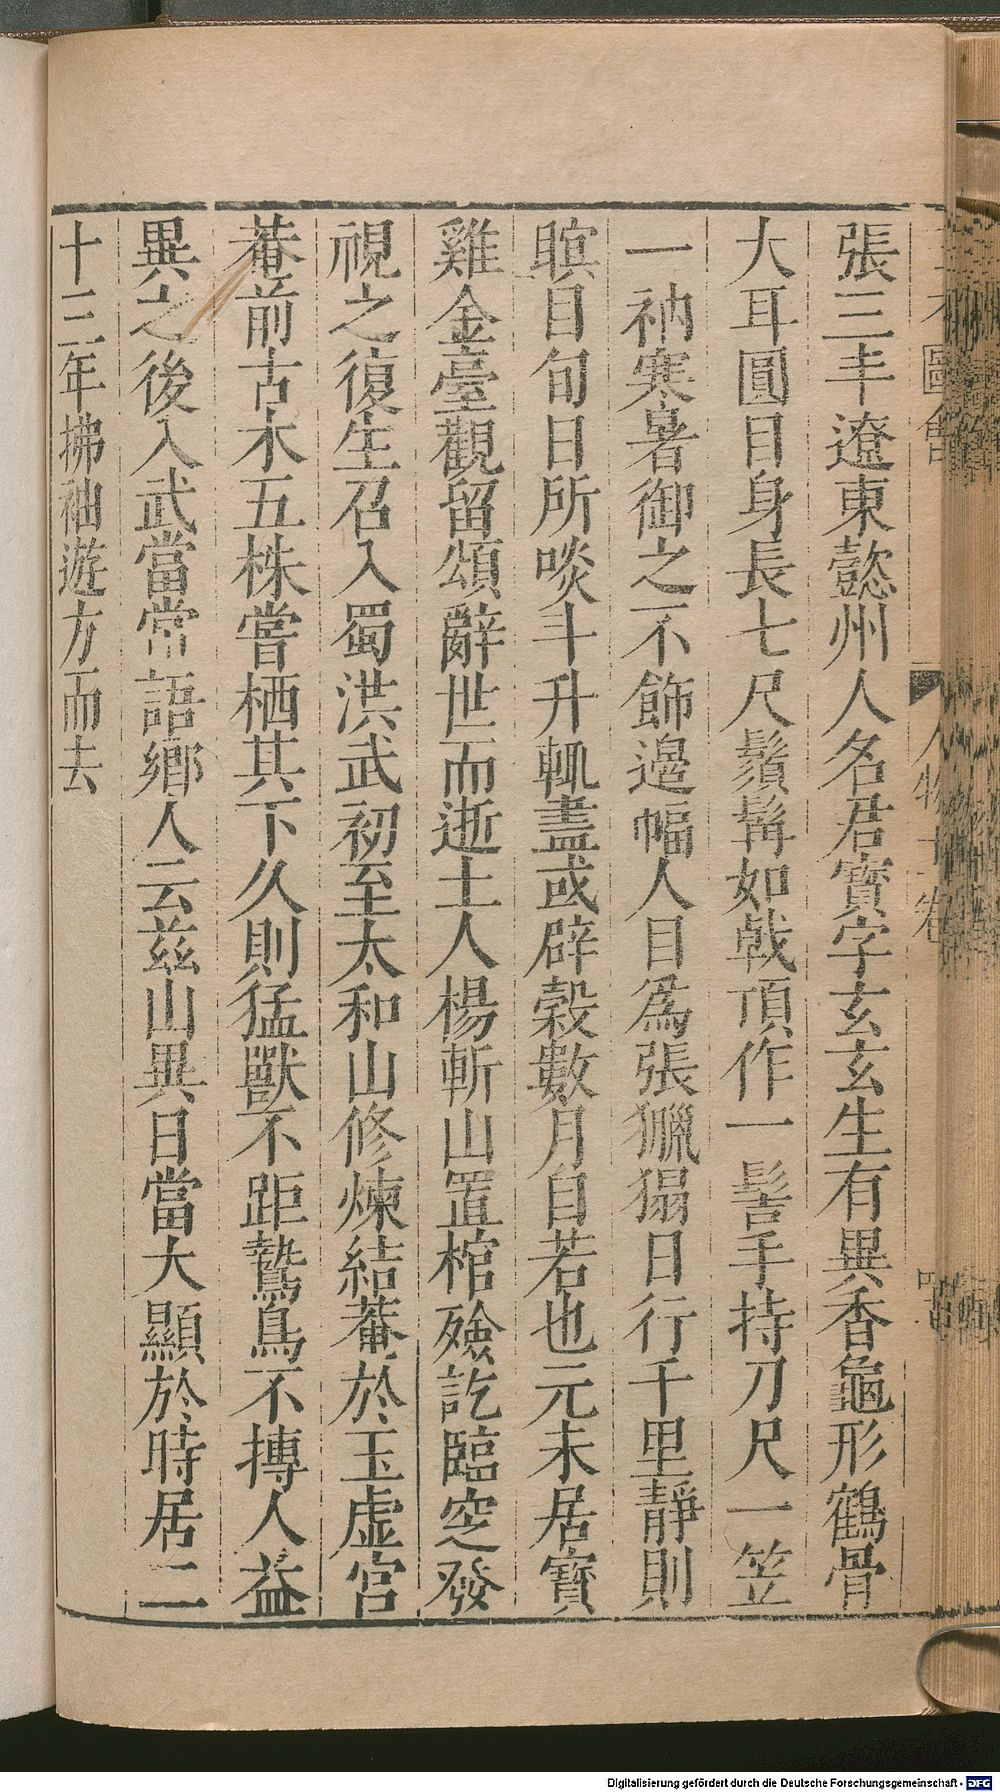 張三丰遼東懿州人名君寶字玄玄生有異香龜形鶴骨
大耳圓目身長七尺鬚髯如戟頂作一髻手持刀尺一笠
一衲寒暑御之不飾邊幅人目為張獵㹋日行千里靜則
瞑目旬日所啖斗升輒盡或辟穀數月自若也元末居寶
雞金臺觀留頌辭世而逝土人楊軒山置棺殮訖臨窆發
視之復生召入蜀洪武初至太和山修煉結菴於玉虛宮
菴前古木五株嘗栖其下久則猛獸不距鷙鳥不搏人益
異之後入武當常語鄉人云茲山異日當大顯於時居二
十三年拂袖遊方而去
圖會
人物十一卷
Digitalisierung gefördert durch die Deutsche Forschungsgemeinschaft - DFG